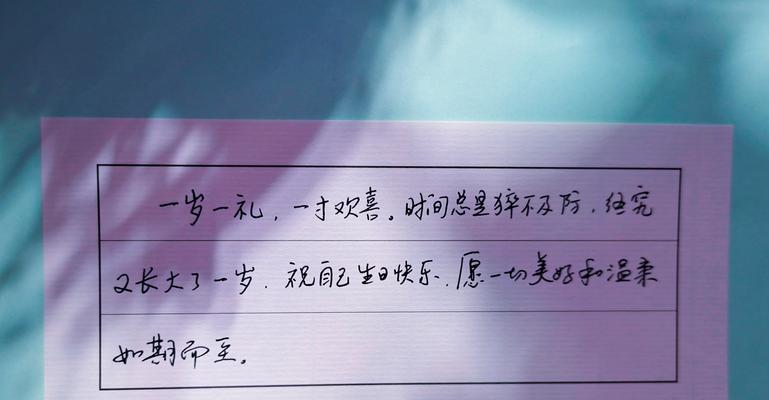 一岁一礼，一寸欢喜。时间总是猝不及防，终究
又长大了一岁，祝自己生日快乐，愿一切美好和温柔
如期而至。